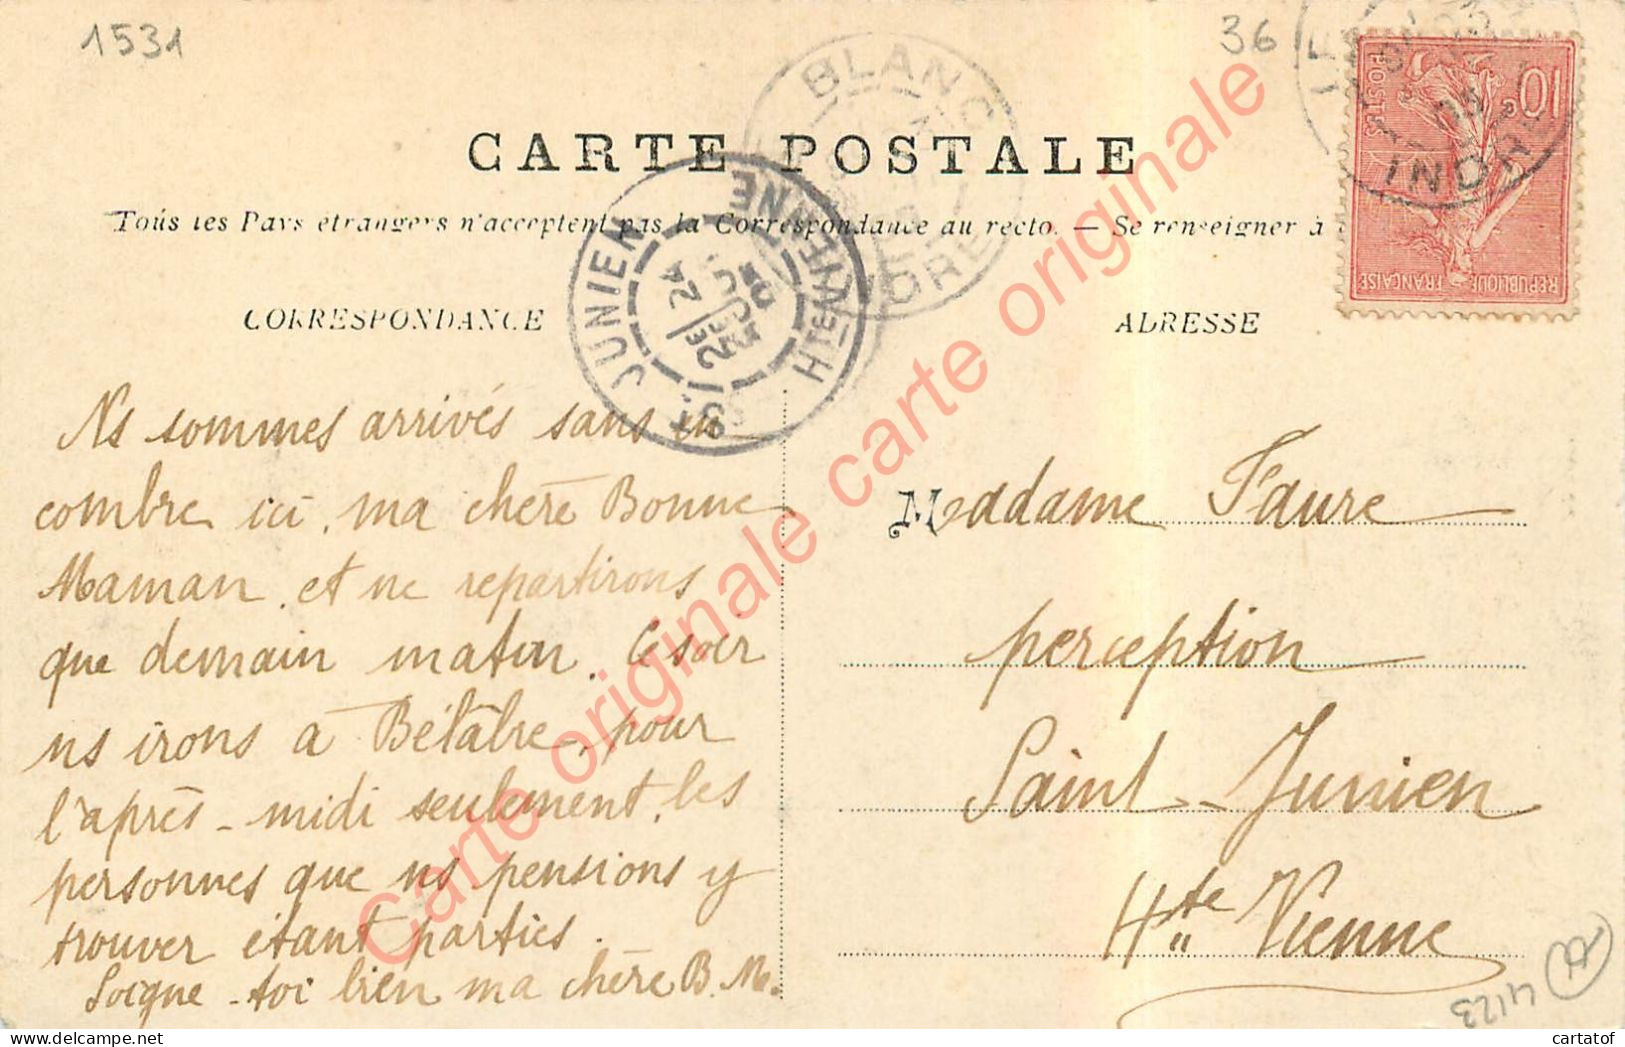 1531
36
BLANC
INDRE
INDRE
10c
POSTES
REPUBLIQUE FRANÇAISE
CARTE POSTALE
Tous les Pays étrangers n'acceptent pas la Correspondance au recto. — Se renseigner à
JUNIEN
HTE VIENNE
CORRESPONDANCE
ADRESSE
Ns sommes arrivés sans en
combre ici, ma chère Bonne
Maman, et ne repartirons
que demain matin. Ce soir
ns irons à Bélâbre, pour
l'après-midi seulement, les
personnes que ns pensions y
trouver étant parties.
Soigne-toi bien ma chère B. M.
Madame Faure
perception
Saint-Junien
Hte Vienne
4123
Carte originale carte originale carte originale
cartatof